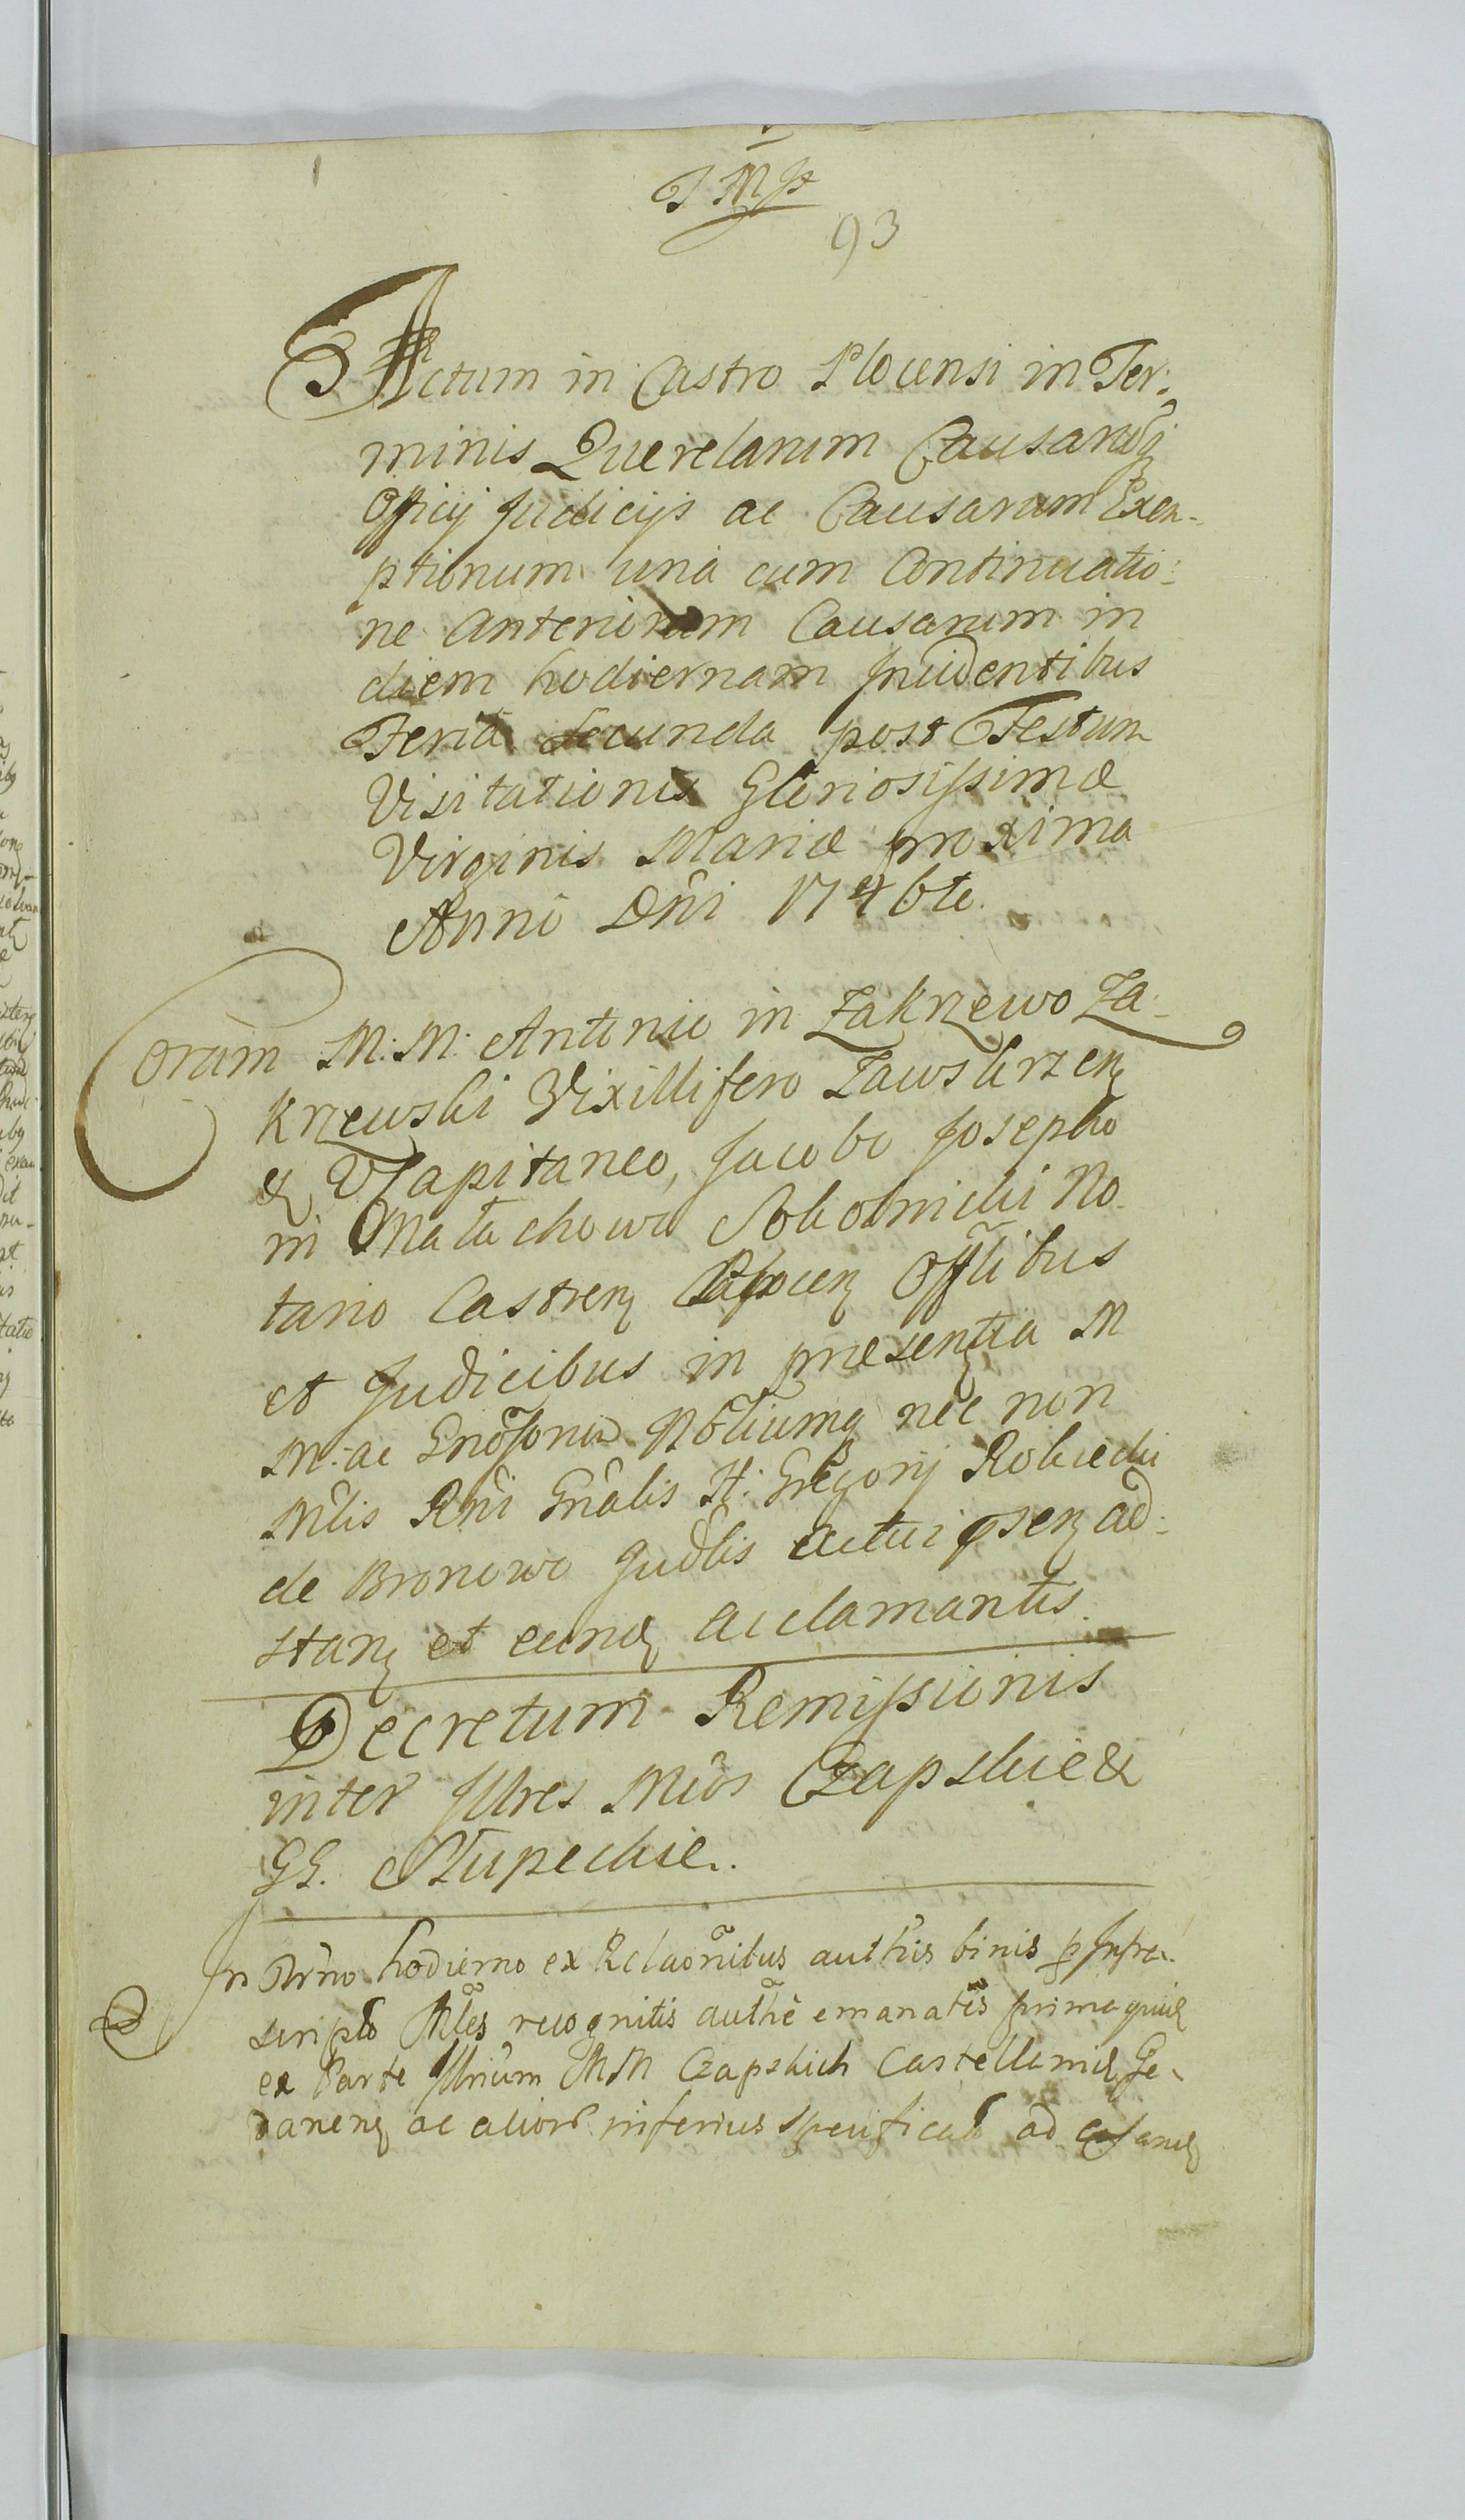 J M J
93
Actum in Castro Plocensi in Ter:
minis Querelarum Causarūq
Officij Judicijs ac Causarum Exem-
ptionum una cum Continuatio:
ne Anteriorum Causarum in
diem hodiernam Incidentibus
Feria Secunda post Festum
Visitationis Gloriosissimæ
Virginis Mariæ proxima
Anno Dni 1746to.
Coram M: M: Antonio in Zakrzewo Za-
krzewski Vixillifero Zawskrzen
& VCapitaneo, Jacobo Josepho
in Małachowo Sokolnicki No-
tario Castren Plocen Offlibus
et Judicibus in præsentia M
M: ac Gnosorum Nobiliumq nec non
Mtlis Rni Gnalis H: Gregorij Robiecki
de Bronowo Judlis actui psen ad:
stan et eund acclamantis.
Decretum Remissionis
inter Illres Mcos Czapskie &
GG. Słupeckie.
In Trno hodierno ex Relaonibus authis binis p Infra
scripto Mles recognitis authe emanatis prima quid
ex Parte Illrium MM Czapskich Castellanid Ge-
danen ac alior inferius specificat ad